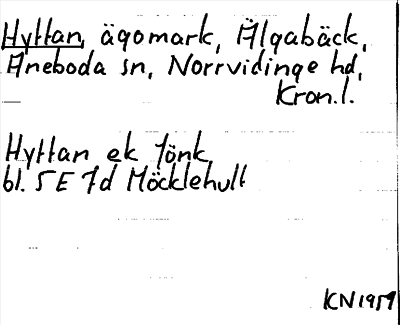 Hyttan, ägomark, Älgabäck,
Aneboda sn, Norrvidinge hd,
Kron.l.
Hyttan ek Jönk
bl. 5E 7d Möcklehult
KN 1959